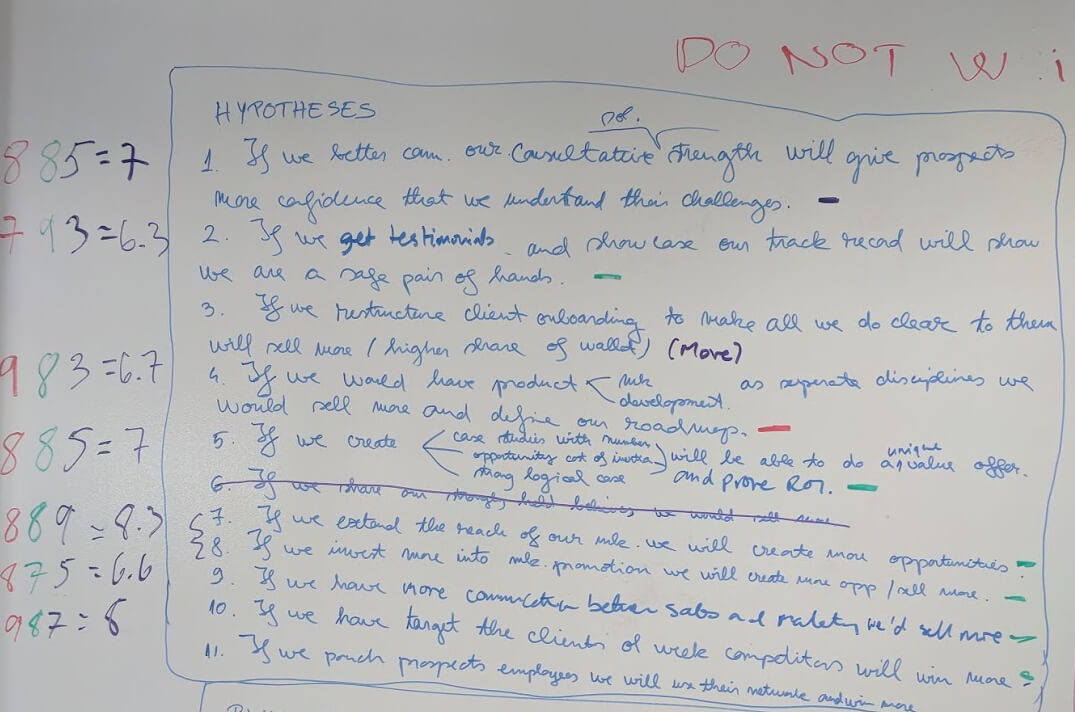 DO NOT W i
HYPOTHESES
8 8 5 = 7
1. If we better com. our consultative strength will give prospects
more confidence that we understand their challenges. -
7 9 3 = 6.3
2. If we get testimonials and showcase our track record will show
we are a safe pair of hands. -
3. If we restructure client onboarding to make all we do clear to them
will sell more / higher share of wallet) (More)
9 8 3 = 6.7
4. If we would have product < mk development. as seperate disciplines we
would sell more and define our roadmap. -
8 8 5 = 7
5. If we create < case studies with number
opportunity cost of
strong logical case
will be able to do a unique value offer.
and prove ROI. -
6. If we share our strongly held believes we would sell more
8 8 9 = 8.3
7. If we extend the reach of our mk. we will create more oppportunities -
8 7 5 = 6.6
8. If we invest more into mk. promotion we will create more opp / sell more. -
9. If we have more better sales and we'd sell more -
9 8 7 = 8
10. If we have target the clients of week compditors will win more
11. If we poach prospects employees we will use their network and win more